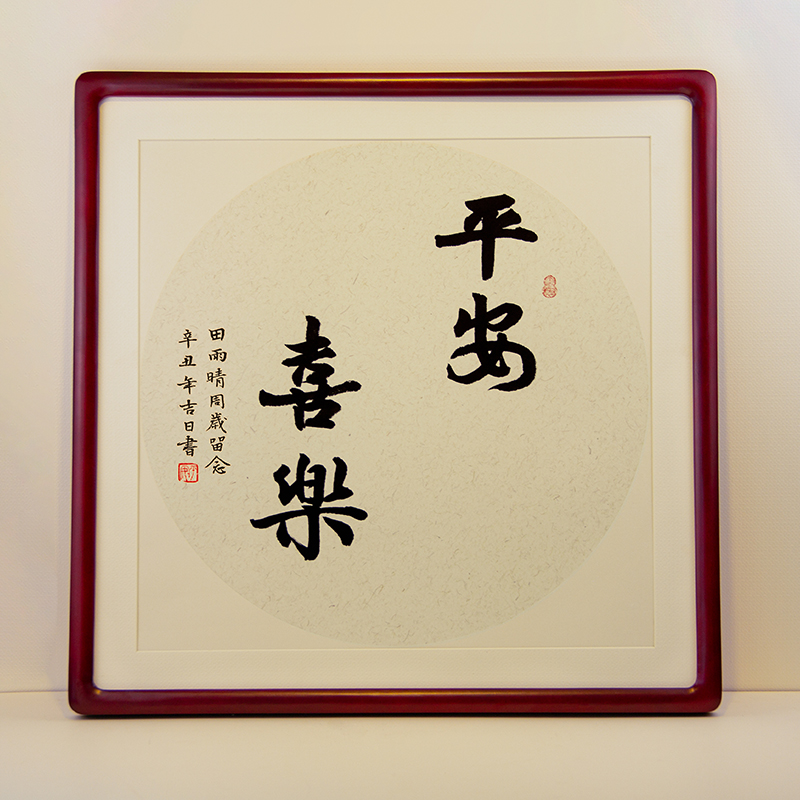 平安
喜樂
田雨晴周歲留念
辛丑年吉日書